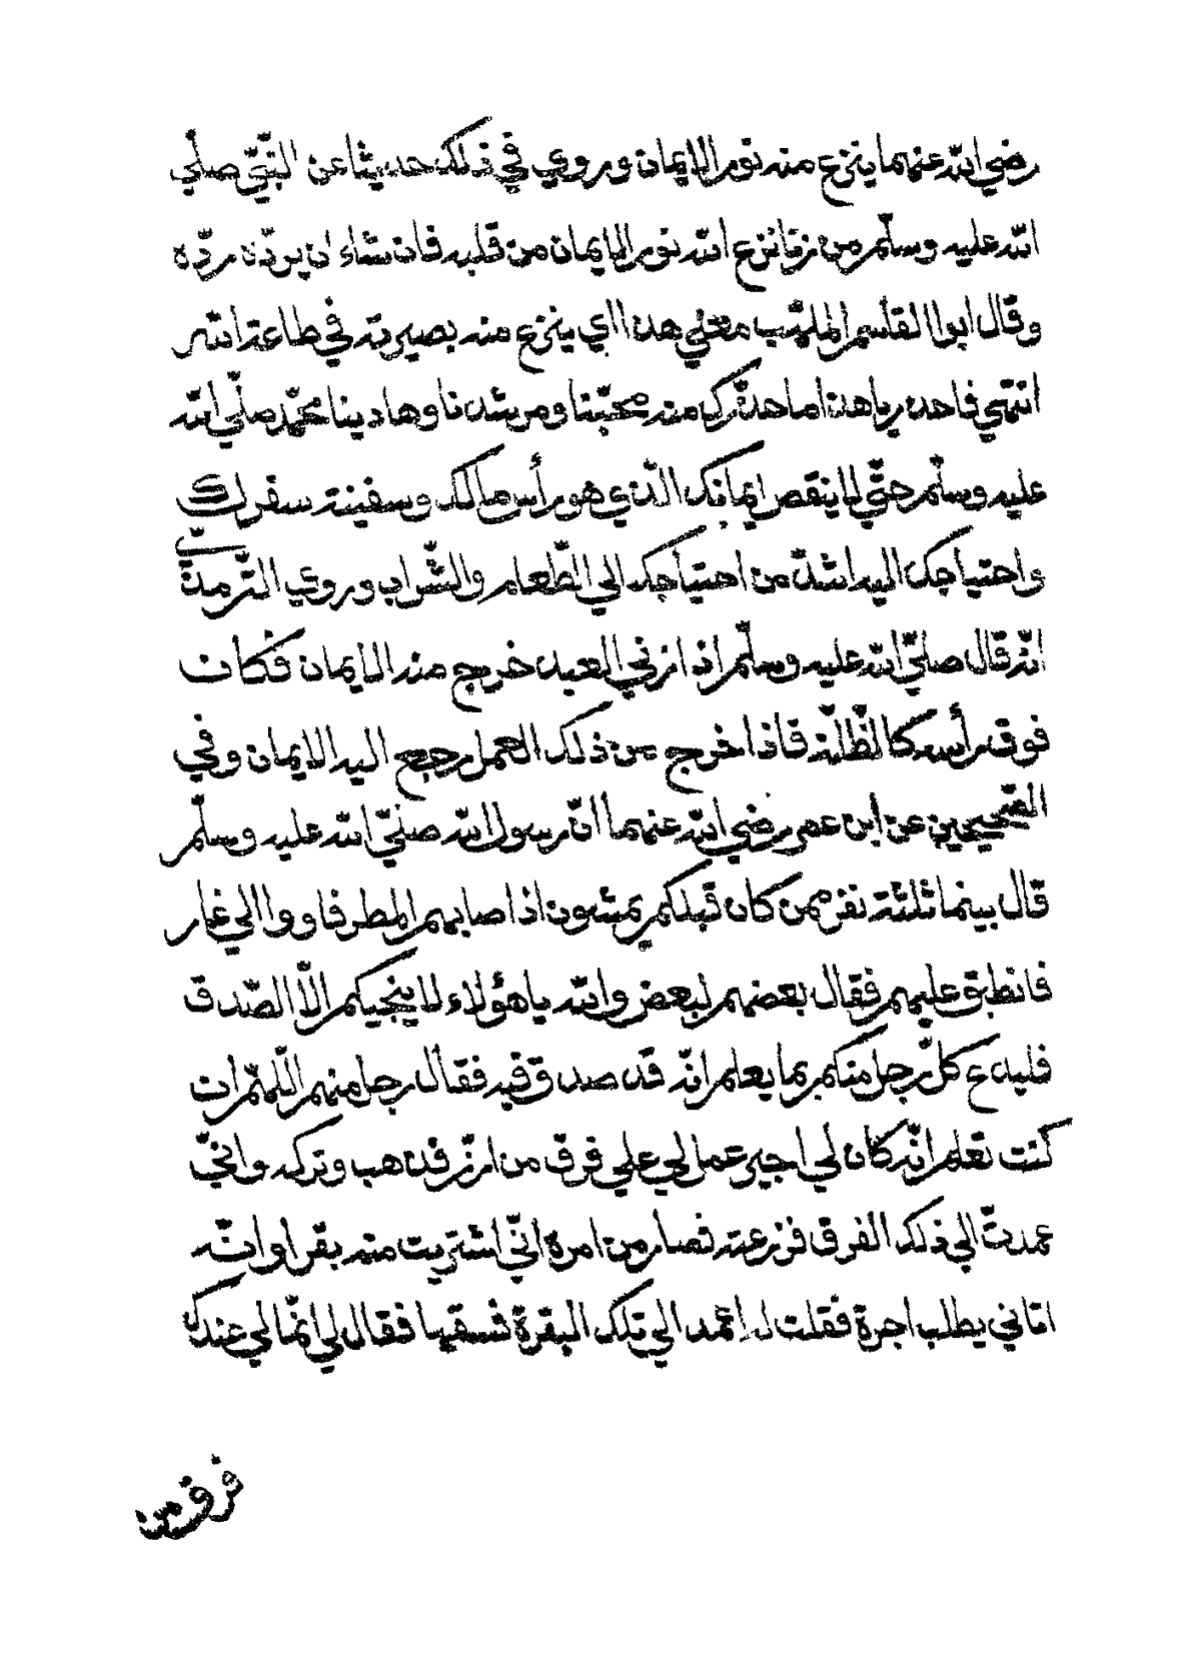 رضي الله عنهما ينزع منه نور الايمان وروي في ذلك حديثا عن النبيّ صلّي
الله عليه وسلّم من زنا نزع الله نور الايمان من قلبه فان شاء ان يردّه ردّه
وقال ابوا القاسم المهلّب معني هذا اي ينزع منه بصيرته في طاعة الله
انتهي فاحذر ياهذا ما حذّرك منه محبّنا ومرشدنا وهادينا محمّد صلّي الله
عليه وسلّم حتّي لا ينقص ايمانك الّذي هو رأس مالك وسفينة سفرك
واحتياجك اليه اشدّ من احتياجك الي الطّعام والشّراب وروي التّرمذيّ
انّه قال صلّي الله عليه وسلّم اذا زني العبد خرج منه الايمان فكان
فوق رأسه كالظّلّة فاذا خرج من ذلك العمل رجع اليه الايمان وفي
الصّحيحين عن ابن عمر رضي الله عنهما أنّ رسول الله صلّي الله عليه وسلّم
قال بينما ثلثة نفر ممن كان قبلكم يمشون اذا صابهم المطر فاووا الي غار
فانطبق عليهم فقال بعضهم لبعض والله ياهؤلاء لا ينجيكم الّا الصّدق
فليدع كلّ رجل منكم بما يعلم انّه قد صدق فيه فقال رجل منهم اللّهمّ ان
كنت تعلم انّه كان لي اجير عمل لي علي فرق من ارز فذهب وتركه وانّي
عمدت الي ذلك الفرق فزرعته فصار من امره انّي اشتريت منه بقرا وانّه
اتاني يطلب اجرة فقلت له اعمد الي تلك البقرة فسقها فقال لي انّما لي عندك
فرق من